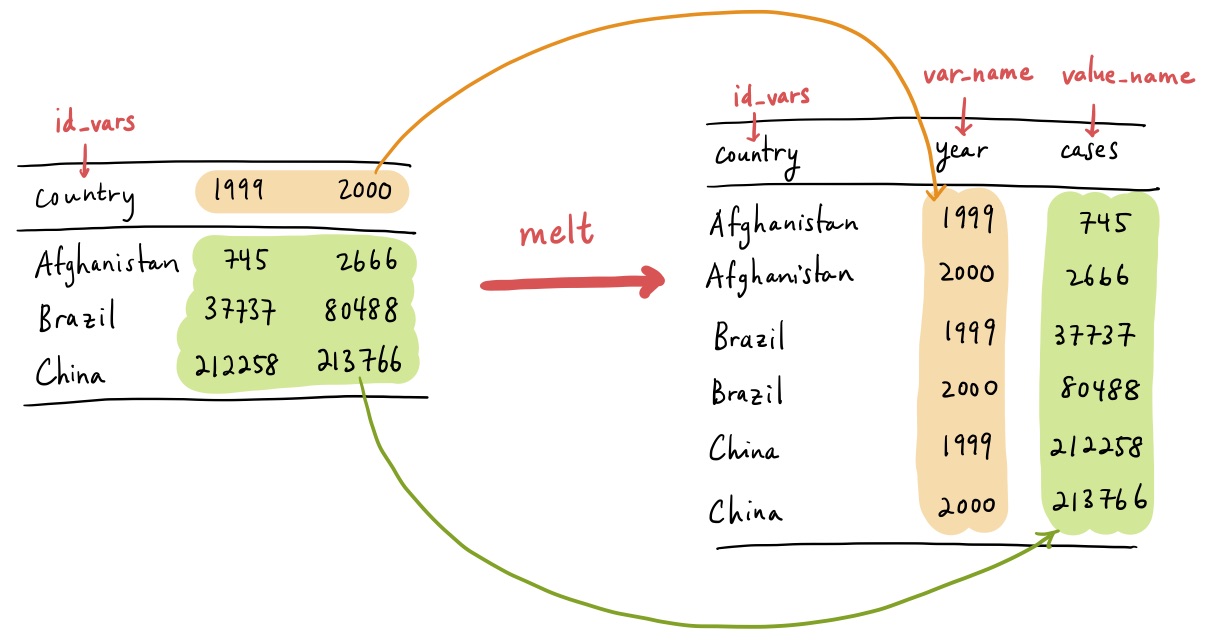 id_vars
country 1999 2000
Afghanistan 745 2666
Brazil 37737 80488
China 212258 213766
melt
id_vars var_name value_name
country year cases
Afghanistan 1999 745
Afghanistan 2000 2666
Brazil 1999 37737
Brazil 2000 80488
China 1999 212258
China 2000 213766